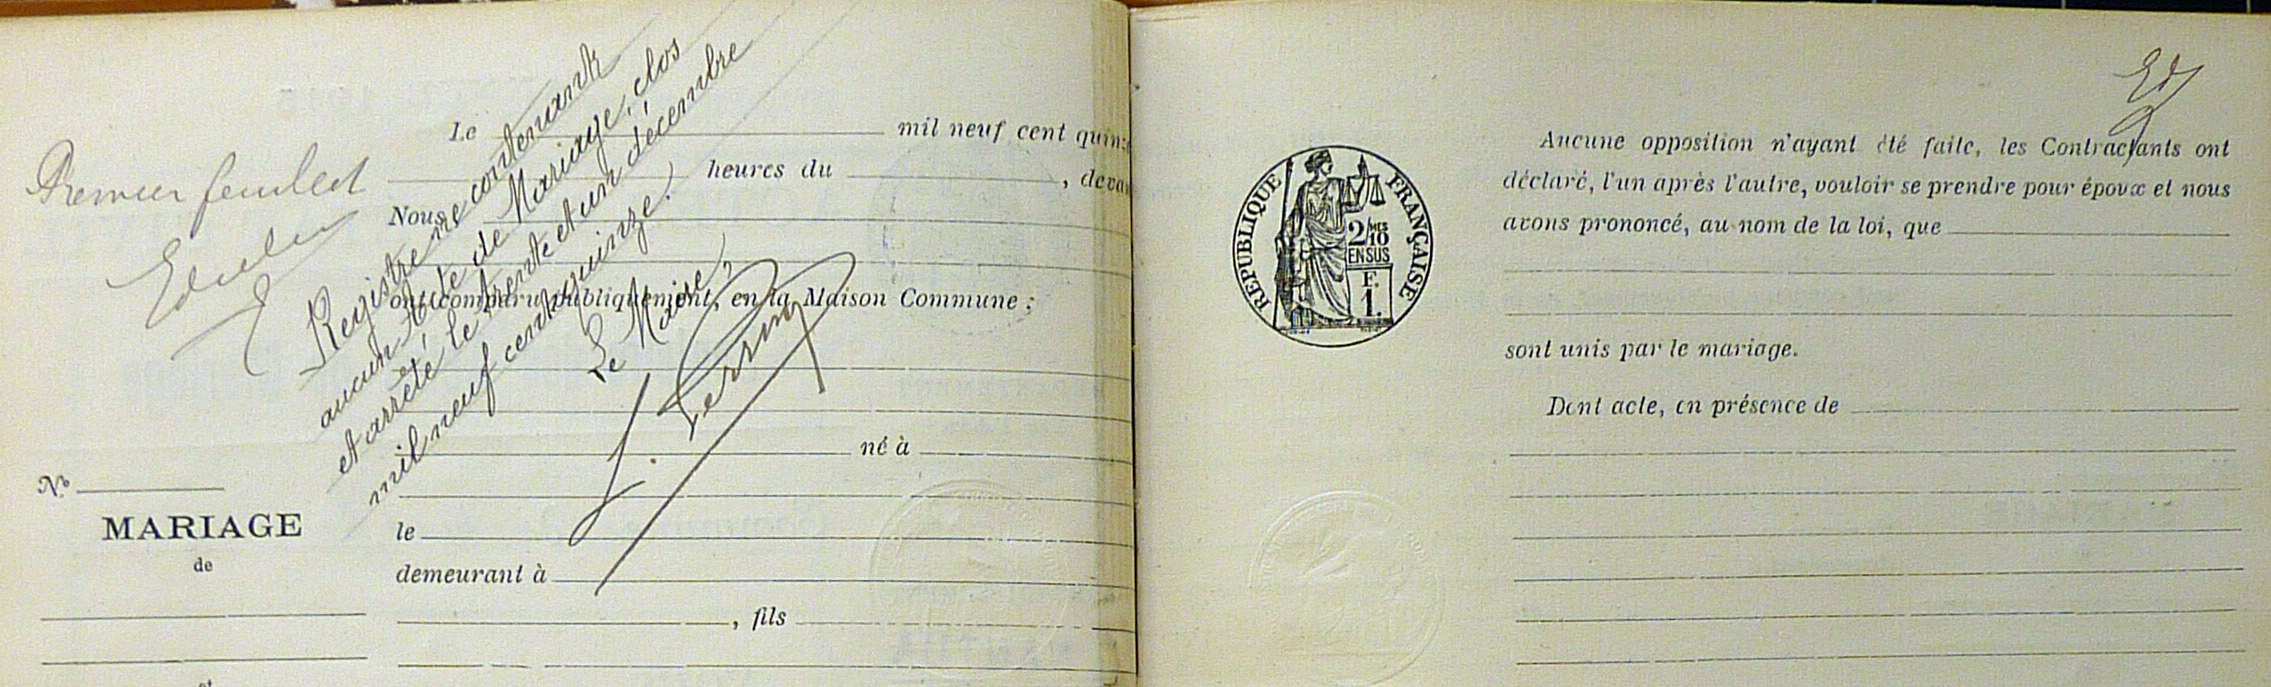 Premier feuillet
Registre ne contenant
aucun Acte de Mariage, clos
et arrêté, le trente et un décembre
mil neuf cent quinze.
Le Maire,
Le mil neuf cent quinze
heures du , deva
Nous
ont comparu publiquement, en la Maison Commune :
né à
le
demeurant à
, fils
No
MARIAGE
de
et
REPUBLIQUE FRANÇAISE
2/10 MES
EN SUS
F.
1.
Aucune opposition n'ayant été faite, les Contractants ont
déclaré, l'un après l'autre, vouloir se prendre pour époux et nous
avons prononcé, au nom de la loi, que
sont unis par le mariage.
Dont acte, en présence de